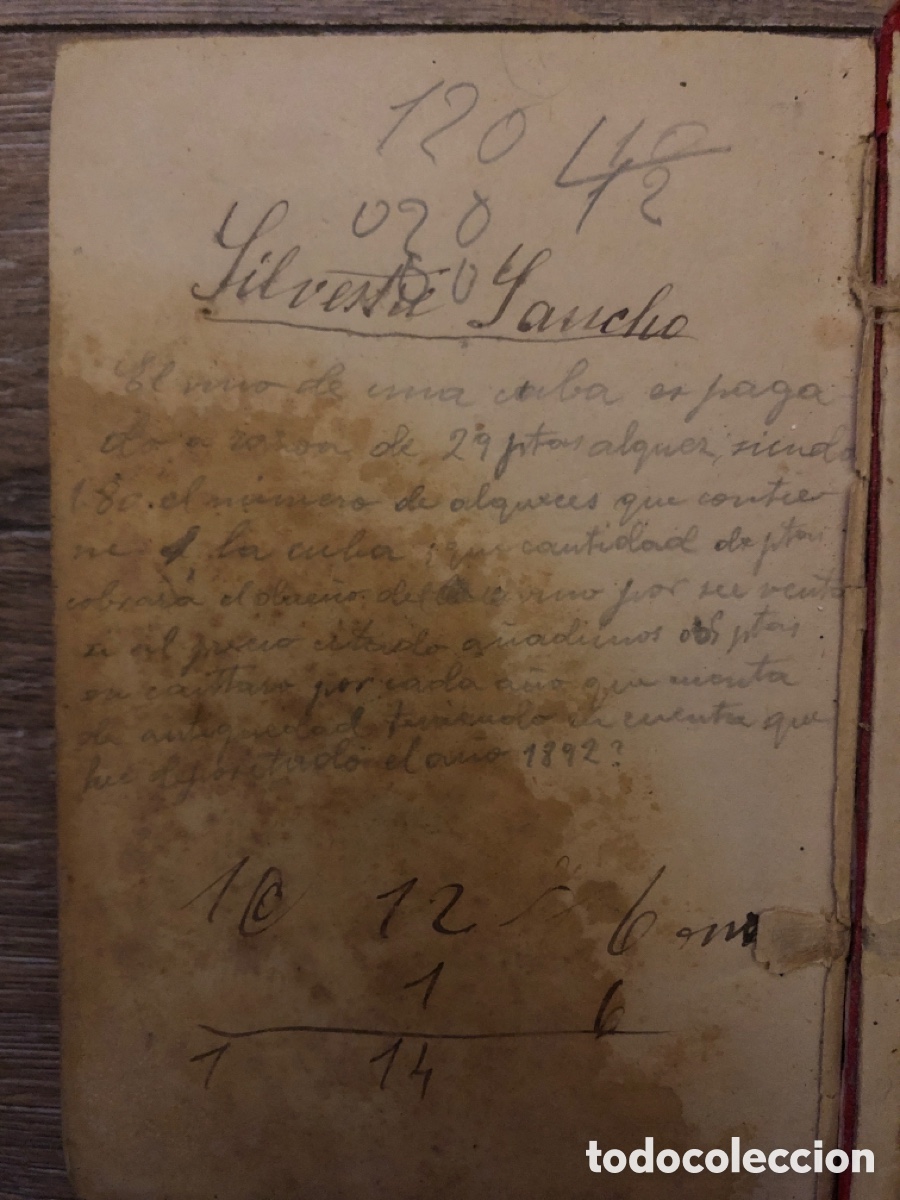 120 10
020 12
00
Silvestre Sancho
El vino de una cuba es paga
do a razon de 29 ptas alquez, siendo
180 el número de alqueces que contie
ne la cuba ¿que cantidad de ptas
cobrará el dueño del vino por su venta
si al precio citado añadimos ptas
en cantaro por cada año que cuenta
de antiguedad teniendo en cuenta que
fue depositado el año 1892?
10 12 6 m
1 6
1 14
todocoleccion